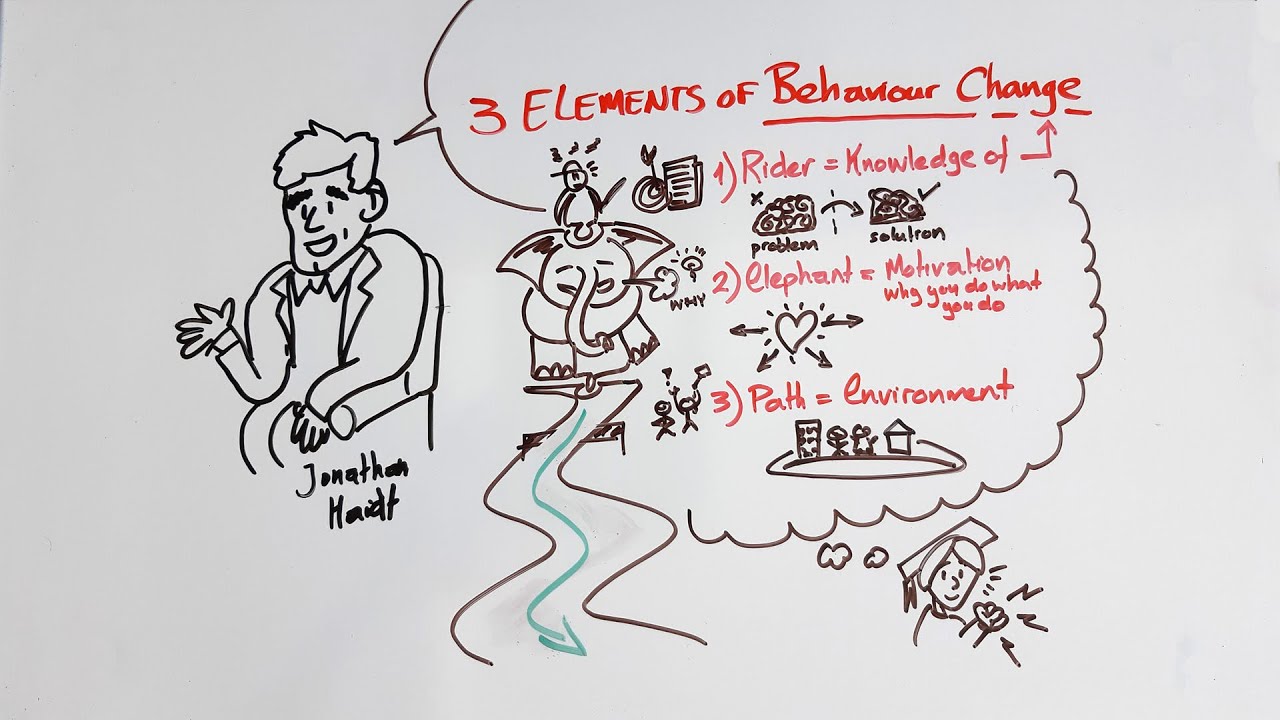 3 ELEMENTS OF Behaviour Change
1) Rider = Knowledge of
problem
solution
2) Elephant = Motivation
why you do what
you do
WHY
3) Path = Environment
Jonathan
Haidt